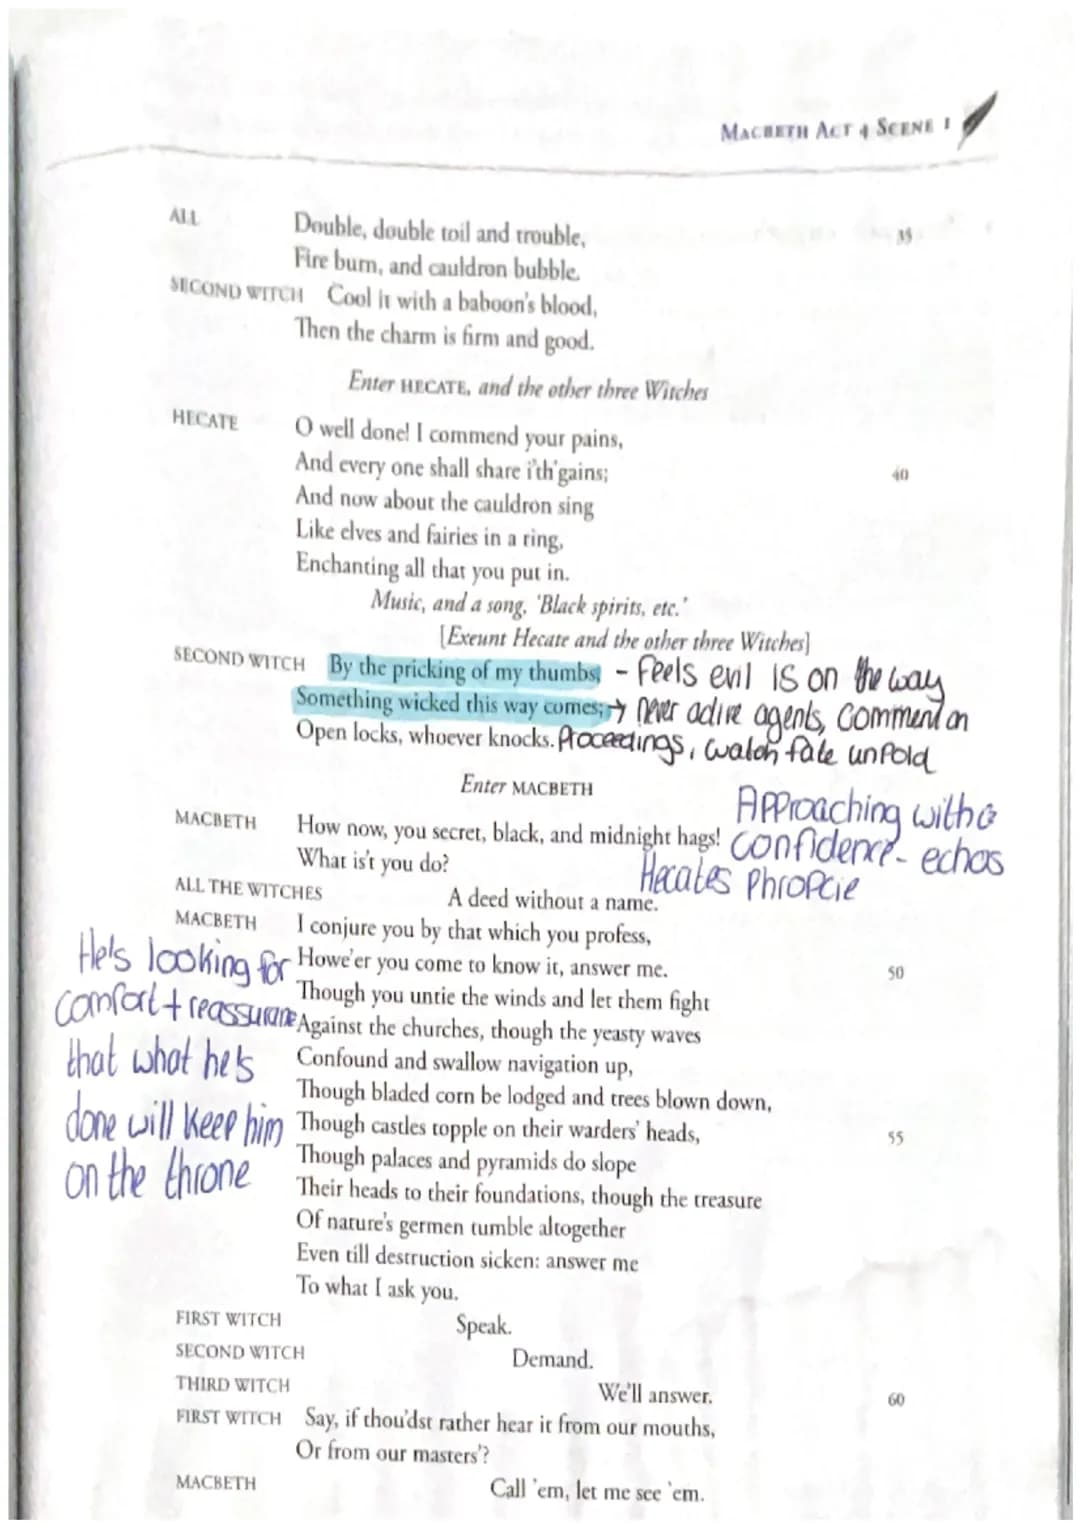 MACBETH ACT 4 SCENE 1
ALL Double, double toil and trouble, 35
Fire burn, and cauldron bubble.
SECOND WITCH Cool it with a baboon's blood,
Then the charm is firm and good.
Enter HECATE, and the other three Witches
HECATE O well done! I commend your pains,
And every one shall share i'th'gains; 40
And now about the cauldron sing
Like elves and fairies in a ring,
Enchanting all that you put in.
Music, and a song, 'Black spirits, etc.'
[Exeunt Hecate and the other three Witches]
SECOND WITCH By the pricking of my thumbs, - feels evil is on the way
Something wicked this way comes; → never active agents, comment on
Open locks, whoever knocks. proceedings, watch fate unfold
Enter MACBETH
Approaching with
MACBETH How now, you secret, black, and midnight hags! confidence - echos
What is't you do? Hecates Phropcie
ALL THE WITCHES A deed without a name.
MACBETH I conjure you by that which you profess,
He's looking for Howe'er you come to know it, answer me. 50
Though you untie the winds and let them fight
comfort + reassurane Against the churches, though the yeasty waves
that what he's Confound and swallow navigation up,
Though bladed corn be lodged and trees blown down,
done will keep him Though castles topple on their warders' heads, 55
on the throne Though palaces and pyramids do slope
Their heads to their foundations, though the treasure
Of nature's germen tumble altogether
Even till destruction sicken: answer me
To what I ask you.
FIRST WITCH Speak.
SECOND WITCH Demand.
THIRD WITCH We'll answer. 60
FIRST WITCH Say, if thou'dst rather hear it from our mouths,
Or from our masters'?
MACBETH Call 'em, let me see 'em.